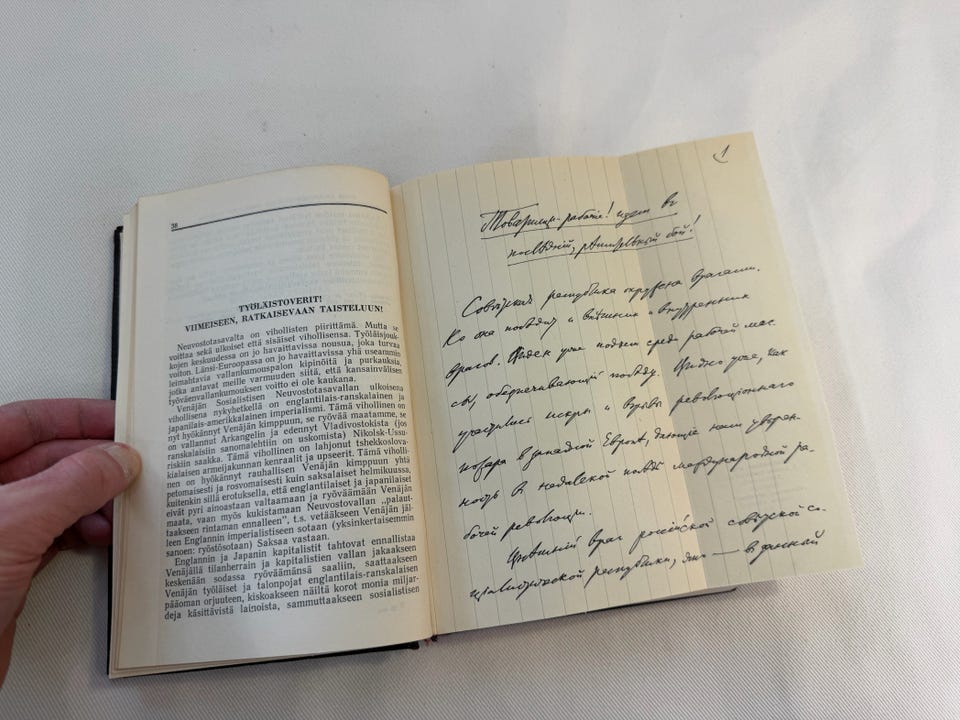 38
TYÖLÄISTOVERIT!
VIIMEISEEN, RATKAISEVAAN TAISTELUUN!
Neuvostotasavalta on vihollisten piirittämä. Mutta se
voittaa sekä ulkoiset että sisäiset vihollisensa. Työläisjouk-
kojen keskuudessa on jo havaittavissa nousua, joka turvaa
voiton. Länsi-Euroopassa on jo havaittavissa yhä useammin
leimahtavia vallankumouspalon kipinöitä ja purkauksia,
jotka antavat meille varmuuden siitä, että kansainvälisen
työväenvallankumouksen voitto ei ole kaukana.
Venäjän Sosialistisen Neuvostotasavallan ulkoisena
vihollisena nykyhetkellä on englantilais-ranskalainen ja
japanilais-amerikkalainen imperialismi. Tämä vihollinen on
nyt hyökännyt Venäjän kimppuun, se ryövää maatamme, se
on vallannut Arkangelin ja edennyt Vladivostokista (jos
ranskalaisiin sanomalehtiin on uskomista) Nikolsk-Ussu-
riskiin saakka. Tämä vihollinen on lahjonut tshekkoslova-
kialaisen armeijakunnan kenraalit ja upseerit. Tämä vihollinen
on hyökännyt rauhallisen Venäjän kimppuun yhtä
petomaisesti ja rosvomaisesti kuin saksalaiset helmikuussa,
kuitenkin sillä erotuksella, että englantilaiset ja japanilaiset
eivät pyri ainoastaan valtaamaan ja ryöväämään Venäjän
maata, vaan myös kukistamaan Neuvostovallan „palaut-
taakseen rintaman ennalleen", t.s. vetääkseen Venäjän jäl-
leen Englannin imperialistiseen sotaan (yksinkertaisemmin
sanoen: ryöstösotaan) Saksaa vastaan.
Englannin ja Japanin kapitalistit tahtovat ennallistaa
Venäjällä tilanherrain ja kapitalistien vallan jakaakseen
keskenään sodassa ryöväämänsä saaliin, saattaakseen
Venäjän työläiset ja talonpojat englantilais-ranskalaisen
pääoman orjuuteen, kiskoakseen näiltä korot monia miljar-
deja käsittävistä lainoista, sammuttaakseen sosialistisen
1
Товарищи-рабочіе! идем въ
послѣдній, рѣшительный бой!
Совѣтская республика окружена врагами.
Но она побѣдит и внѣшних и внутренних
врагов. Виден уже подъем среди рабочей мас-
сы, обезпечивающий побѣду. Видно уже, как
участились искры и взрывы революціоннаго
пожара в западной Европѣ, дающіе нам уверен-
ность в недалекой победѣ международной ра-
бочей революціи.
Внѣшній враг російской совѣтской со-
ціалистической республики, это — в данный